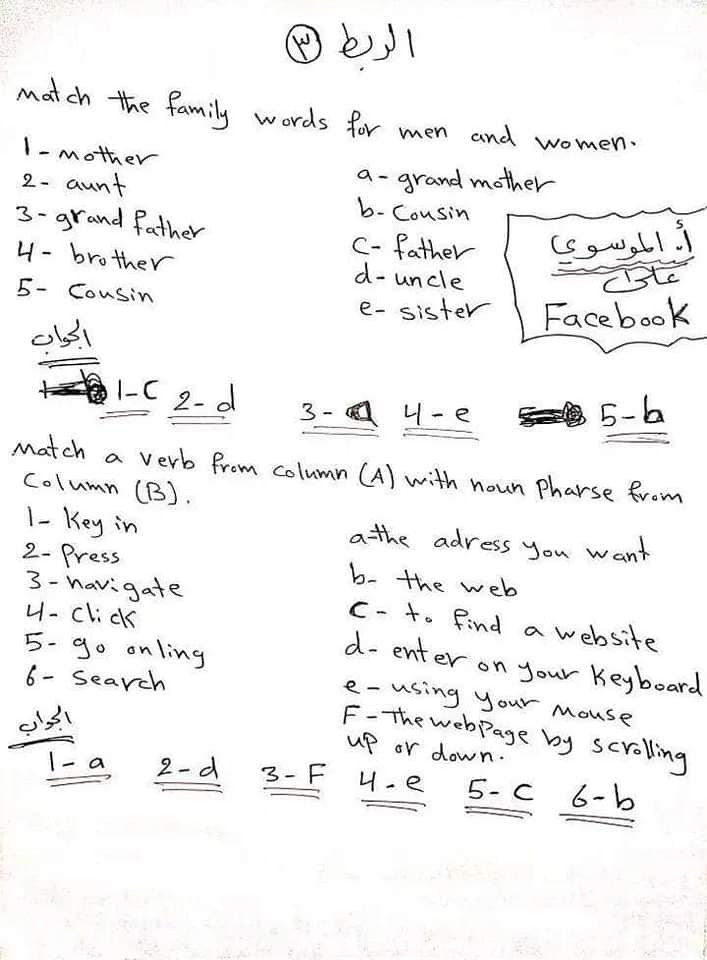 الربط ٣
match the family words for men and women.
1- mother
2- aunt
3- grand father
4- brother
5- Cousin
a- grand mother
b- Cousin
C- father
d- uncle
e- sister
أ. الموسوي
على
Facebook
الجواب
1-C 2-d 3-a 4-e 5-b
Match a verb from column (A) with noun Pharse from
Column (B).
1- Key in
2- Press
3- navigate
4- click
5- go onling
6- Search
a- the adress you want
b- the web
C- to find a website
d- enter on your Keyboard
e- using your mouse
F- The webpage by scrolling
up or down.
الجواب
1-a 2-d 3-F 4-e 5-C 6-b